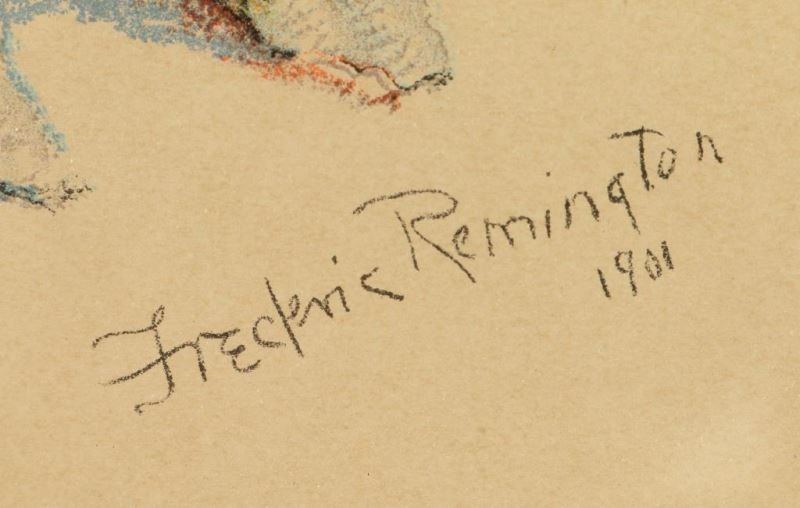 Frederic Remington
1901